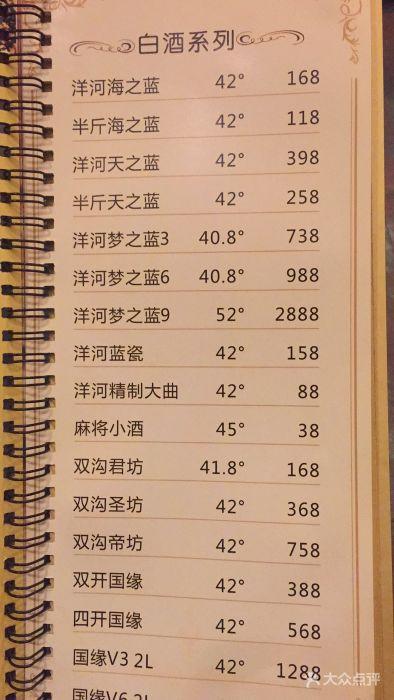 白酒系列
洋河海之蓝 42° 168
半斤海之蓝 42° 118
洋河天之蓝 42° 398
半斤天之蓝 42° 258
洋河梦之蓝3 40.8° 738
洋河梦之蓝6 40.8° 988
洋河梦之蓝9 52° 2888
洋河蓝瓷 42° 158
洋河精制大曲 42° 88
麻将小酒 45° 38
双沟君坊 41.8° 168
双沟圣坊 42° 368
双沟帝坊 42° 758
双开国缘 42° 388
四开国缘 42° 568
国缘V3 2L 42° 1288
国缘V6 2L
大众点评